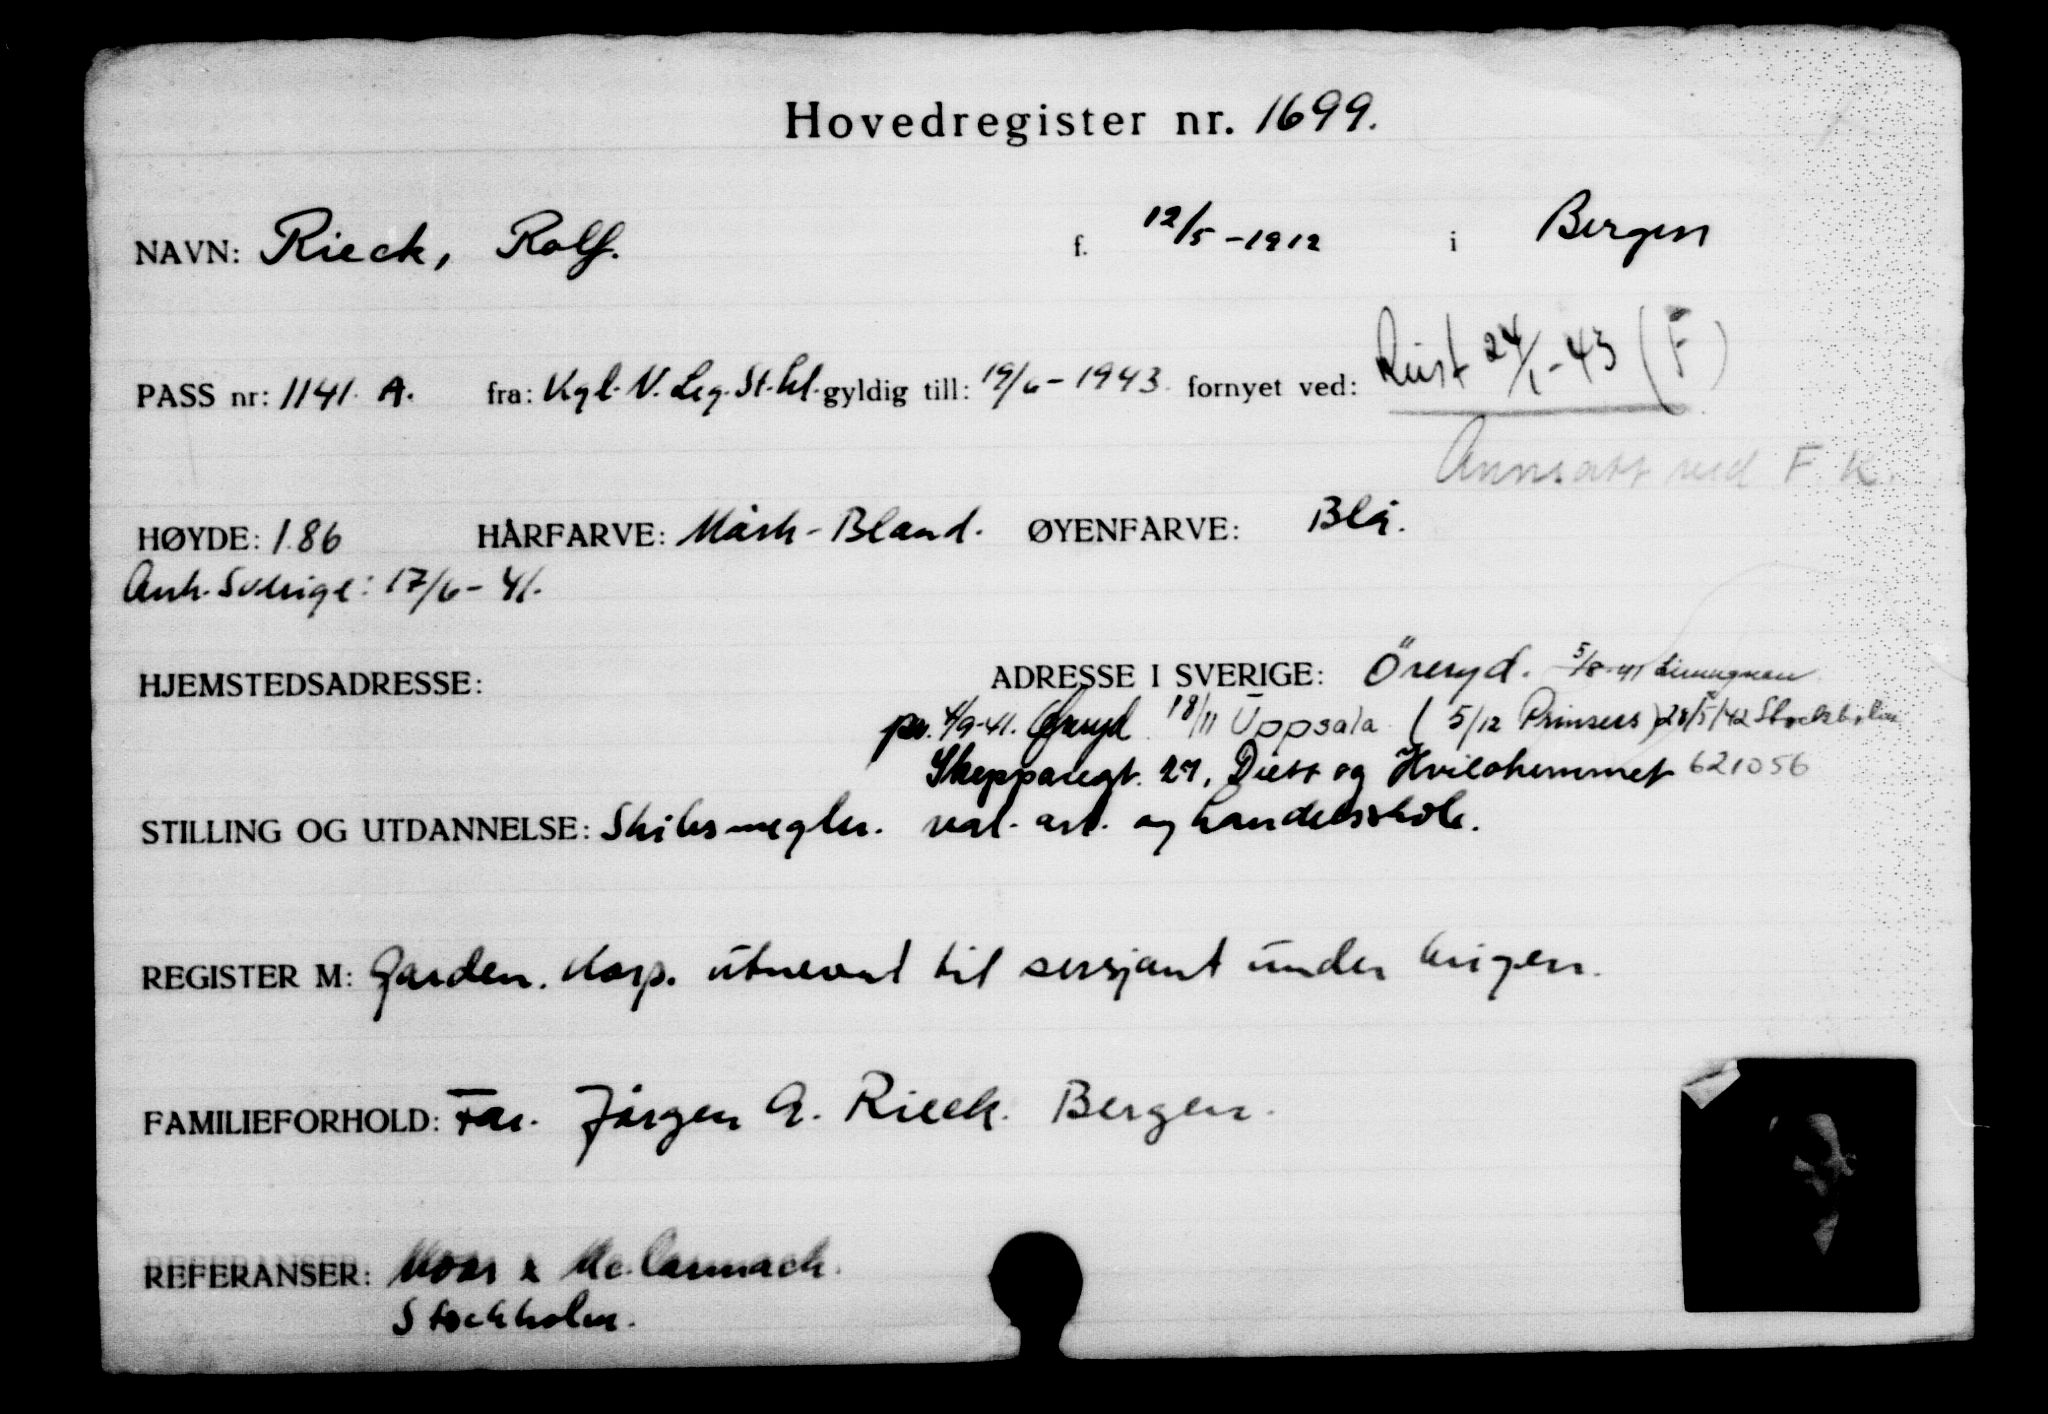 Hovedregister nr. 1699.
NAVN: Rieck, Rolf. f. 12/5 - 1912 i Bergen
PASS nr: 1141. A. fra: Kgl. N. Leg. St.hl. gyldig till: 19/6 - 1943. fornyet ved: Reist 24/1 - 43 (F)
Annsatt ved F. K.
HØYDE: 1.86 HÅRFARVE: Mörk - Blond. ØYENFARVE: Blå.
Ank. Sverige: 17/6 - 41.
HJEMSTEDSADRESSE: ADRESSE I SVERIGE: Öreryd. 5/8-41
4/9-41. Öreryd 18/11 Uppsala (5/12 Prinsess) 28/5/42 Stockholm
Skepparegt. 27, Diett og Hvilohemmet 621056
STILLING OG UTDANNELSE: Skibsmegler. real. art. og handelsskole.
REGISTER M: Garden. Korp. utnevnt til sersjant under krigen.
FAMILIEFORHOLD: Far. Jörgen A. Rieck. Bergen.
REFERANSER: Moor & Mc.Cormack.
Stockholm.